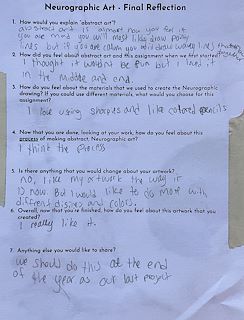 Neurographic Art - Final Reflection
1. How would you explain "abstract art"?
abstract art is almost how you feel if
you are mad you will most likes draw pointy
lines but if you are calm you will draw wavey lines
2. How did you feel about abstract art and this assignment when we first started?
I thought it wouldnt be fun but I loved it
in the middle and end.
3. How do you feel about the materials that we used to create the Neurographic
drawing? If you could use different materials, what would you choose for this
assignment?
I love using sharpies and like colored pencils
4. Now that you are done, looking at your work, how do you feel about this
process of making abstract Neurographic art?
I think the process
5. Is there anything that you would change about your artwork?
no, I like my the way it
is now. But I would like to do most with
different and colors.
6. Overall, now that you're finished, how do you feel about this artwork that you
created?
I really like it.
7. Anything else you would like to share?
we should do this at the end
of the year as our last project